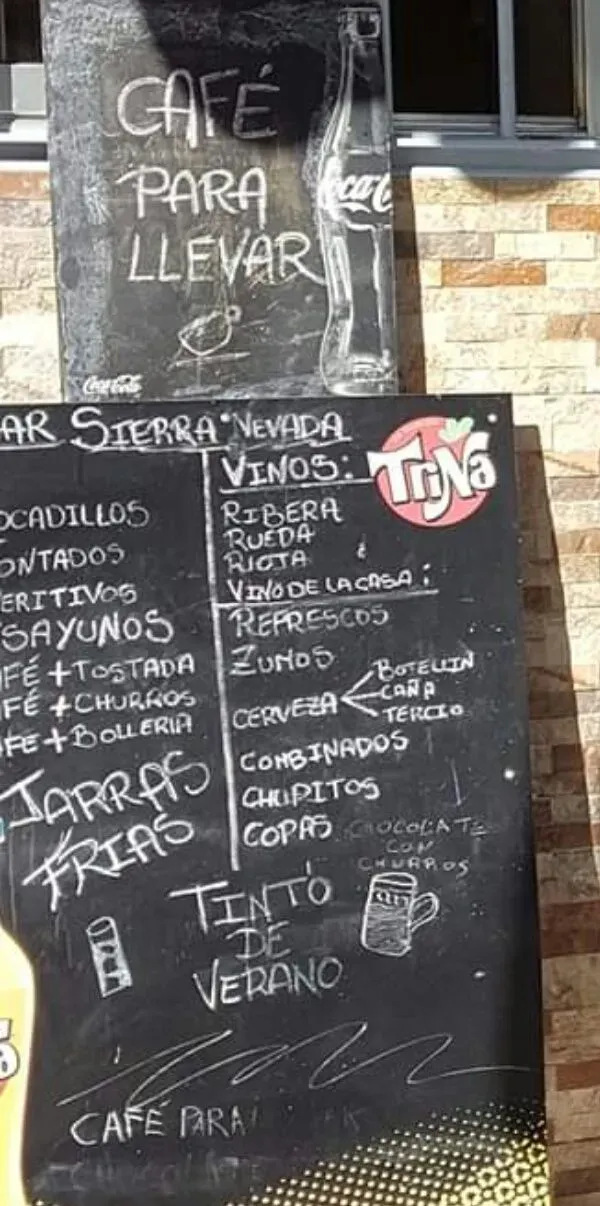 CAFÉ
PARA
LLEVAR
Coca-C
Coca-Cola
AR SIERRA NEVADA
TRiNa
OCADILLOS
ONTADOS
ERITIVOS
SAYUNOS
FÉ + TOSTADA
FÉ + CHURROS
FE + BOLLERIA
JARRAS
FRIAS
VINOS:
RIBERA
RUEDA
RIOJA
VINO DE LA CASA:
REFRESCOS
ZUMOS
CERVEZA
BOTELLIN
CAÑA
TERCIO
COMBINADOS
CHUPITOS
COPAS
CHOCOLATE
CON
CHURROS
TINTO
DE
VERANO
CAFÉ PARA
CHOCOLATE